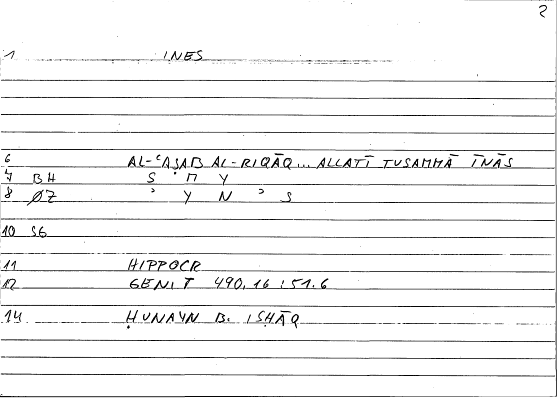 2
1 INES
6 AL-ʿAṢAB AL-RIQĀQ... ALLATĪ TUSAMMĀ ĪNĀS
7 BH S M Y
8 ØZ ʾ Y N ʾ S
10 SG
11 HIPPOCR
12 GENIT 490,16 : 51.6
14 ḤUNAYN B. ISḤĀQ